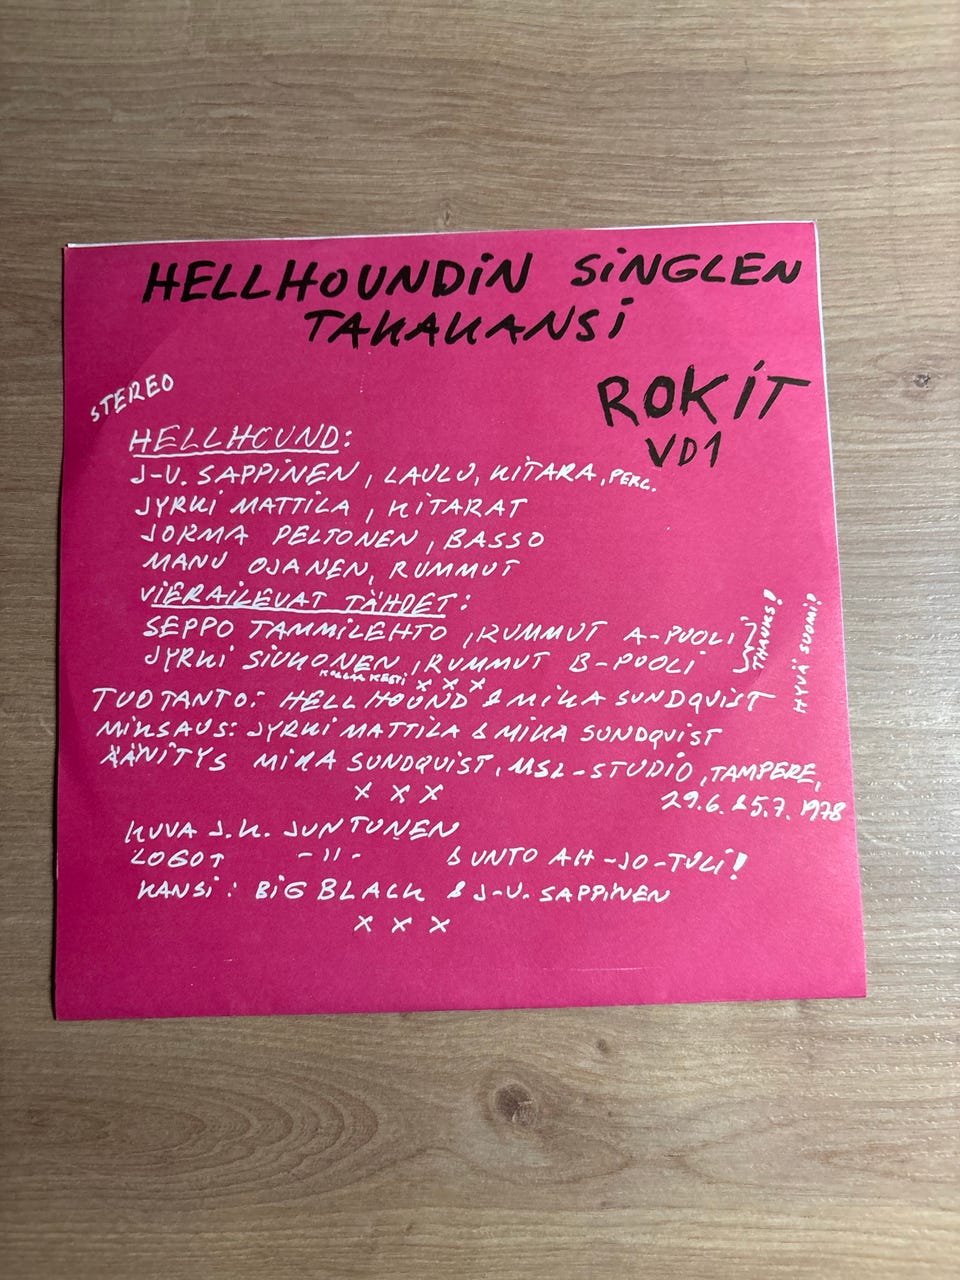 HELLHOUNDiN SiNGLEN
TAKAKANSi
STEREO
ROKiT
VD1
HELLHOUND:
J-U. SAPPiNEN, LAULU, KiTARA, PERC.
JYRKi MATTiLA, KiTARAT
JORMA PELTONEN, BASSO
MANU OJANEN, RUMMUT
ViERAiLEVAT TÄHDET:
SEPPO TAMMiLEHTO, RUMMUT A-PUOLi
JYRKi SiUKONEN, RUMMUT B-PUOLi
THANKS!
HYVÄ SUOMi!
x x x
TUOTANTO: HELLHOUND & MiKA SUNDQViST
MiKSAUS: JYRKi MATTiLA & MiKA SUNDQViST
ÄÄNiTYS MiKA SUNDQViST, MSL-STUDiO, TAMPERE,
29.6. & 5.7. 1978
x x x
KUVA J.K. JUNTUNEN
LOGOT -"- & UNTO AH-JO-TULi!
KANSi: BiG BLACK & J-U. SAPPiNEN
x x x